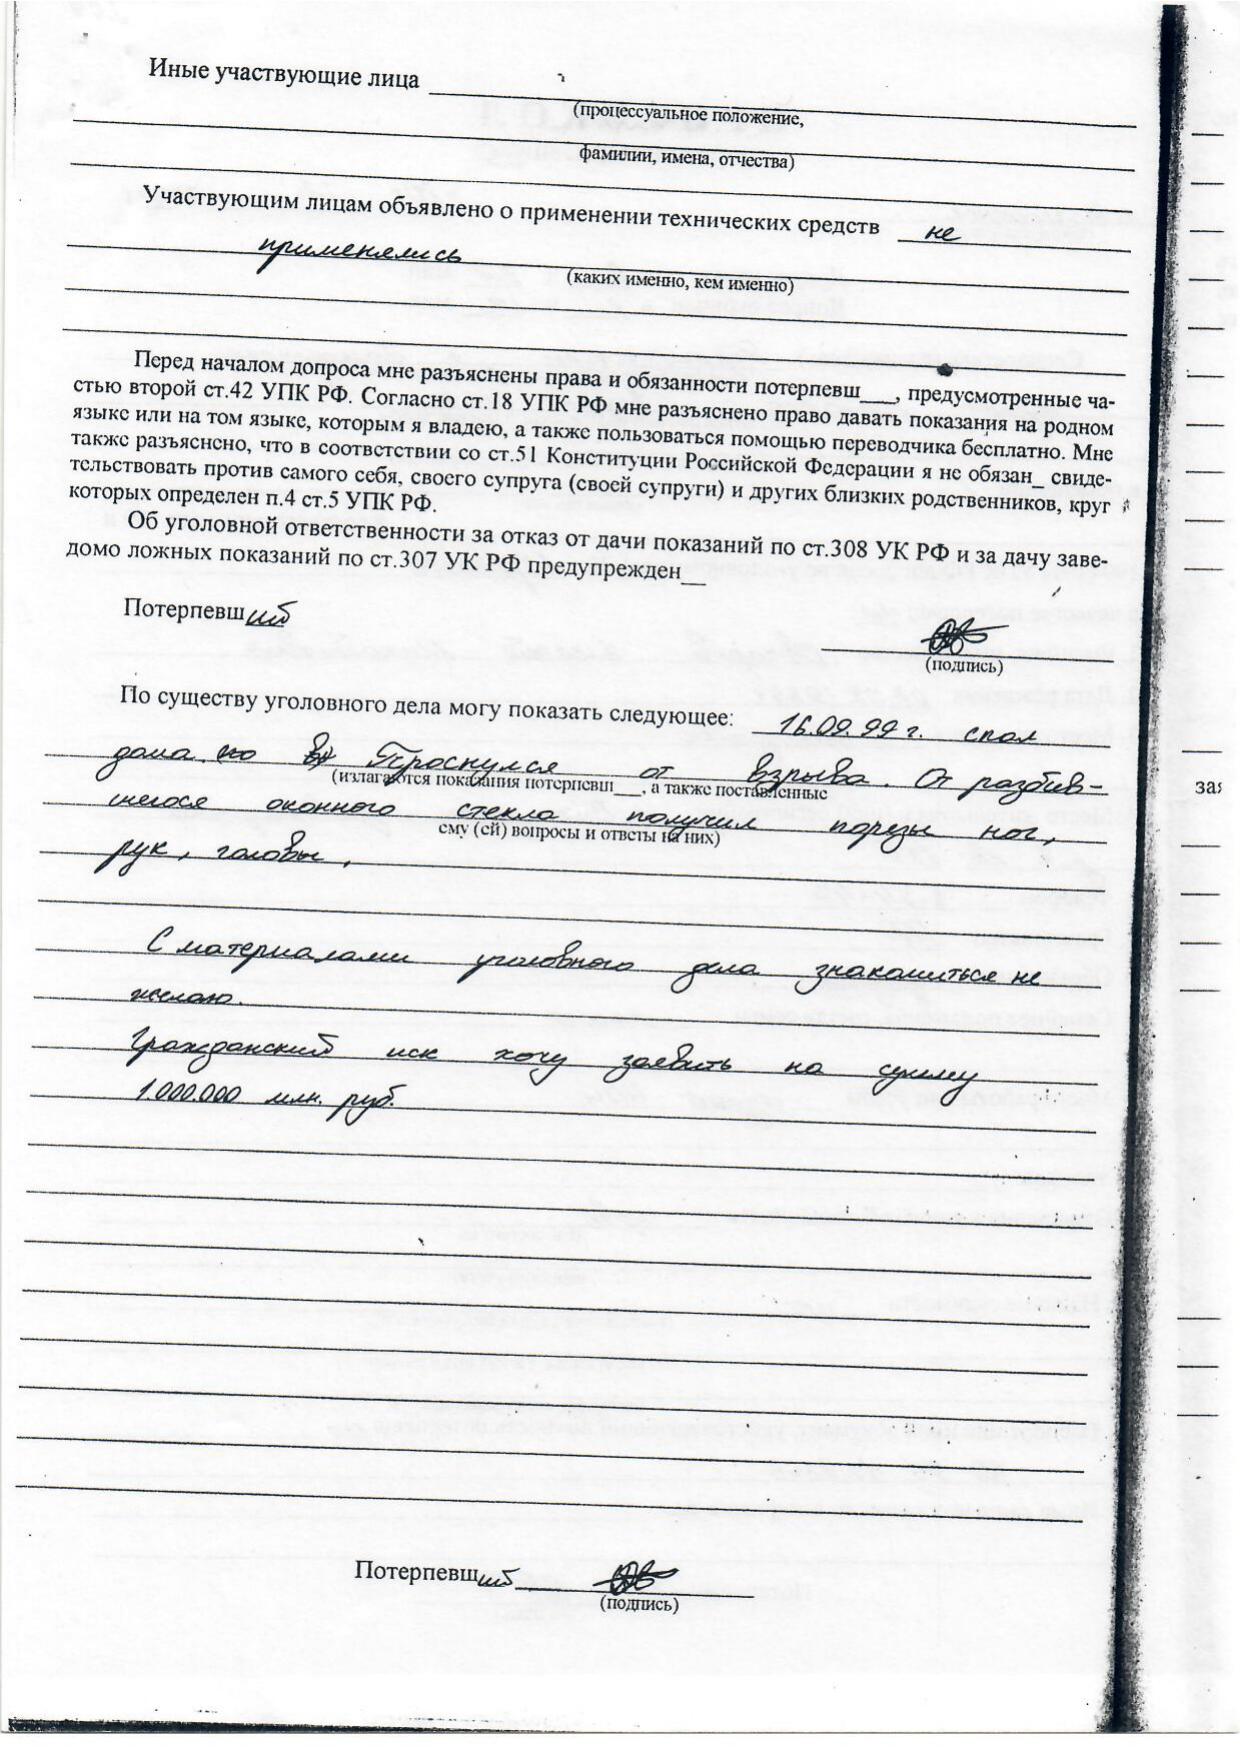 Иные участвующие лица
(процессуальное положение,
фамилии, имена, отчества)
Участвующим лицам объявлено о применении технических средств не
применялись
(каких именно, кем именно)
Перед началом допроса мне разъяснены права и обязанности потерпевш___, предусмотренные ча-
стью второй ст.42 УПК РФ. Согласно ст.18 УПК РФ мне разъяснено право давать показания на родном
языке или на том языке, которым я владею, а также пользоваться помощью переводчика бесплатно. Мне
также разъяснено, что в соответствии со ст.51 Конституции Российской Федерации я не обязан_ свиде-
тельствовать против самого себя, своего супруга (своей супруги) и других близких родственников, круг
которых определен п.4 ст.5 УПК РФ.
Об уголовной ответственности за отказ от дачи показаний по ст.308 УК РФ и за дачу заве-
домо ложных показаний по ст.307 УК РФ предупрежден__
Потерпевший
(подпись)
По существу уголовного дела могу показать следующее: 16.09.99 г. спал
дома. Проснулся от взрыва. От разбив-
(излагаются показания потерпевш___, а также поставленные
шегося оконного стекла получил порезы ног,
ему (ей) вопросы и ответы на них)
рук, головы,
С материалами уголовного дела знакомиться не
желаю.
Гражданский иск хочу заявить на сумму
1.000.000 млн. руб.
Потерпевший
(подпись)
зая